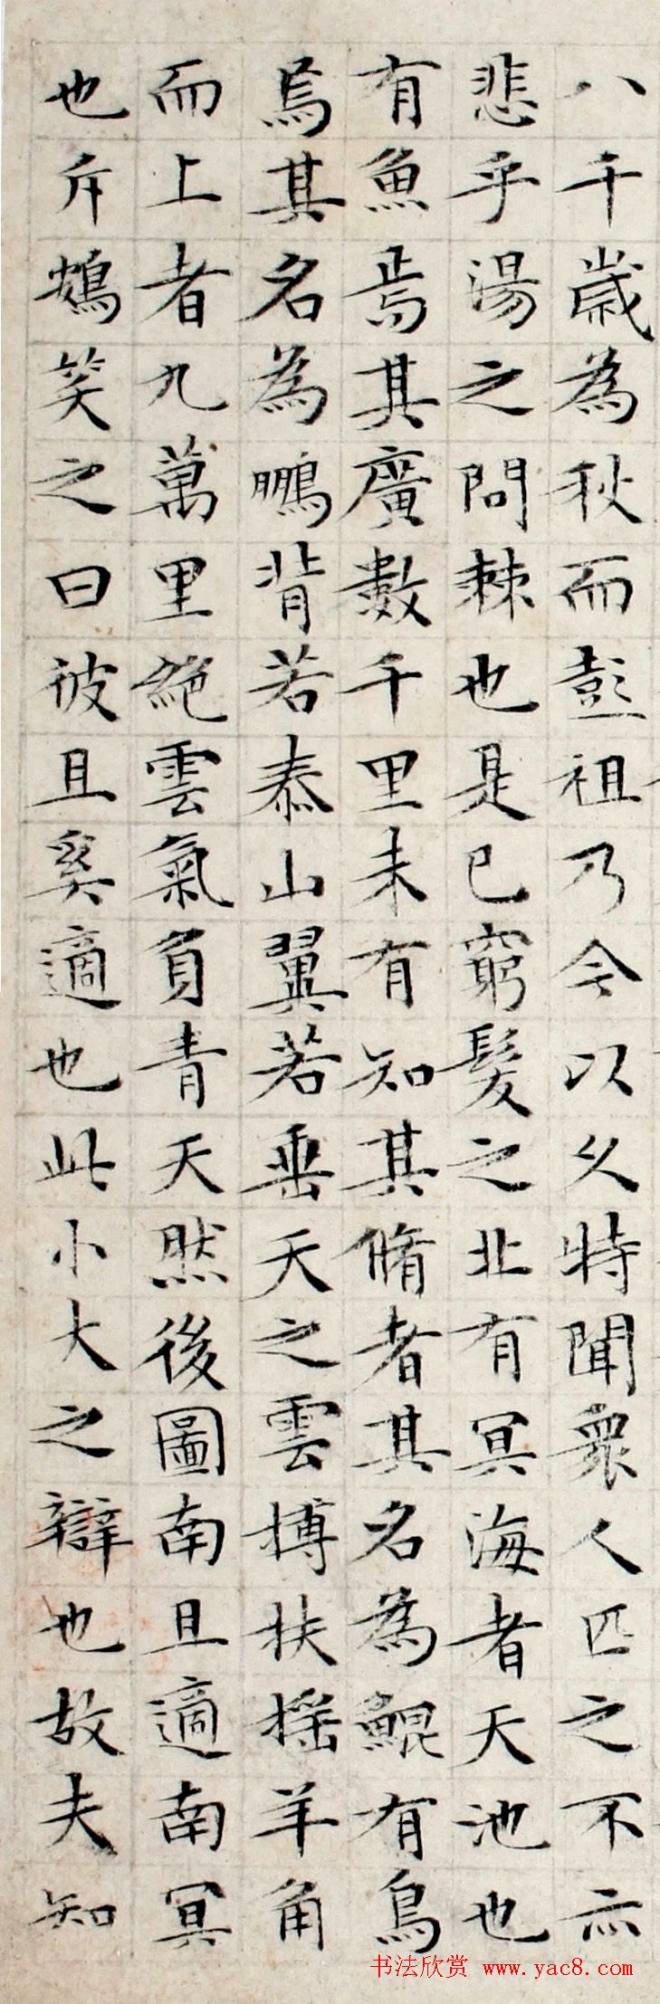 八千歲為秋而彭祖乃今以久特聞衆人匹之不亦
悲乎湯之問棘也是已窮髮之北有冥海者天池也
有魚焉其廣數千里未有知其脩者其名為鯤有鳥
焉其名為鵬背若泰山翼若垂天之雲摶扶搖羊角
而上者九萬里絕雲氣負青天然後圖南且適南冥
也斥鴳笑之曰彼且奚適也此小大之辯也故夫知
书法欣赏 www.yac8.com